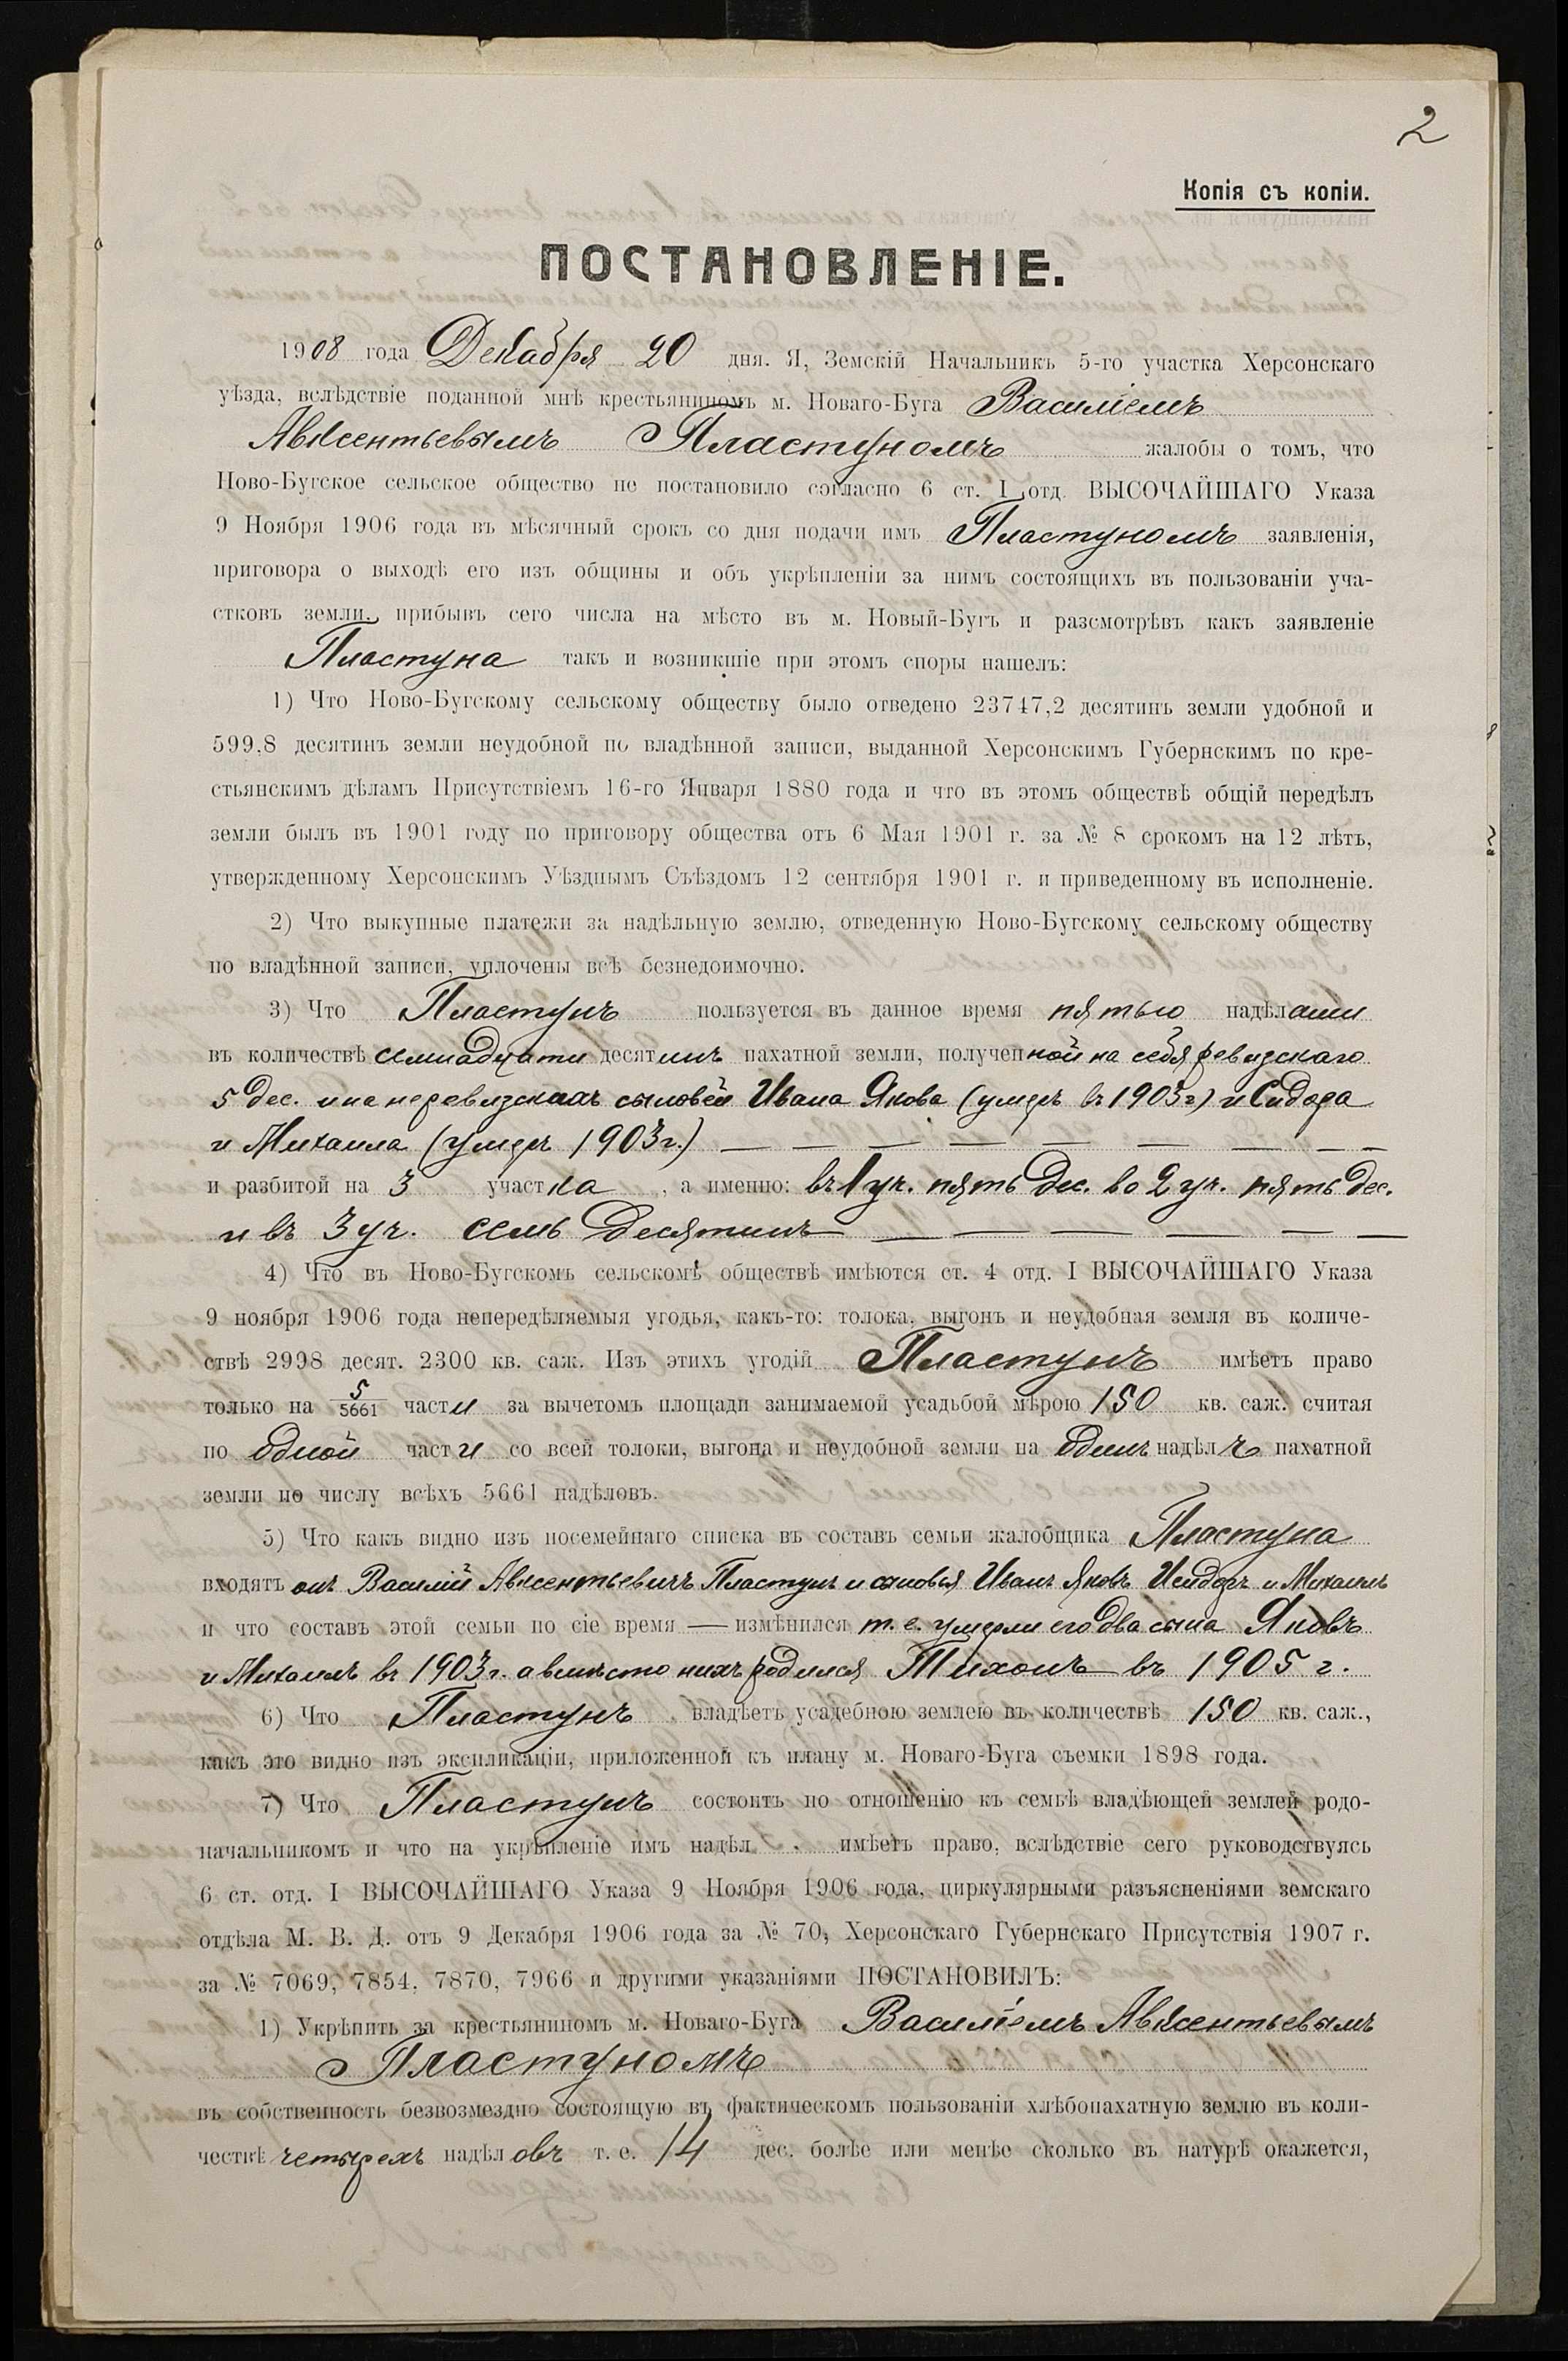 2
Копія съ копіи.
ПОСТАНОВЛЕНІЕ.
1908 года Декабря 20 дня. Я, Земскій Начальникъ 5-го участка Херсонскаго
уѣзда, вслѣдствіе поданной мнѣ крестьяниномъ м. Новаго-Буга Василіемъ
Авксентьевымъ Пластуномъ жалобы о томъ, что
Ново-Бугское сельское общество не постановило согласно 6 ст. I отд. ВЫСОЧАЙШАГО Указа
9 Ноября 1906 года въ мѣсячный срокъ со дня подачи имъ Пластуномъ заявленія,
приговора о выходѣ его изъ общины и объ укрѣпленіи за нимъ состоящихъ въ пользованіи уча-
стковъ земли, прибывъ сего числа на мѣсто въ м. Новый-Бугъ и разсмотрѣвъ какъ заявленіе
Пластуна такъ и возникшіе при этомъ споры нашелъ:
1) Что Ново-Бугскому сельскому обществу было отведено 23747,2 десятинъ земли удобной и
599,8 десятинъ земли неудобной по владѣнной записи, выданной Херсонскимъ Губернскимъ по кре-
стьянскимъ дѣламъ Присутствіемъ 16-го Января 1880 года и что въ этомъ обществѣ общій передѣлъ
земли былъ въ 1901 году по приговору общества отъ 6 Мая 1901 г. за № 8 срокомъ на 12 лѣтъ,
утвержденному Херсонскимъ Уѣзднымъ Съѣздомъ 12 сентября 1901 г. и приведенному въ исполненіе.
2) Что выкупные платежи за надѣльную землю, отведенную Ново-Бугскому сельскому обществу
по владѣнной записи, уплочены всѣ безнедоимочно.
3) Что Пластунъ пользуется въ данное время пятью надѣлами
въ количествѣ семнадцати десятинъ пахатной земли, полученной на себя ревизскаго
5 дес. и на неревизскихъ сыновей Ивана Якова (умеръ въ 1903 г) и Сидора
и Михаила (умеръ 1903 г.) — — — — — — — —
и разбитой на 3 участка, а именно: въ 1 уч. пять дес. во 2 уч. пять дес.
и въ 3 уч. семь десятинъ — — — — — —
4) Что въ Ново-Бугскомъ сельскомъ обществѣ имѣются ст. 4 отд. I ВЫСОЧАЙШАГО Указа
9 ноября 1906 года непередѣляемыя угодья, какъ-то: толока, выгонъ и неудобная земля въ количе-
ствѣ 2998 десят. 2300 кв. саж. Изъ этихъ угодій Пластунъ имѣетъ право
только на 5/5661 части за вычетомъ площади занимаемой усадьбой мѣрою 150 кв. саж. считая
по одной части со всей толоки, выгона и неудобной земли на одинъ надѣлъ пахатной
земли по числу всѣхъ 5661 надѣловъ.
5) Что какъ видно изъ посемейнаго списка въ составъ семьи жалобщика Пластуна
входятъ онъ Василій Авксентьевичъ Пластунъ и сыновья Иванъ Яковъ Исидоръ и Михаилъ
и что составъ этой семьи по сіе время — измѣнился т. е. умерли его два сына Яковъ
и Михаилъ въ 1903 г. а вмѣсто нихъ родился Тихонъ въ 1905 г.
6) Что Пластунъ владѣетъ усадебною землею въ количествѣ 150 кв. саж.,
какъ это видно изъ экспликаціи, приложенной къ плану м. Новаго-Буга съемки 1898 года.
7) Что Пластунъ состоитъ по отношенію къ семьѣ владѣющей землей родо-
начальникомъ и что на укрѣпленіе имъ надѣл имѣетъ право, вслѣдствіе сего руководствуясь
6 ст. отд. I ВЫСОЧАЙШАГО Указа 9 Ноября 1906 года, циркулярными разъясненіями земскаго
отдѣла М. В. Д. отъ 9 Декабря 1906 года за № 70, Херсонскаго Губернскаго Присутствія 1907 г.
за № 7069, 7854, 7870, 7966 и другими указаніями ПОСТАНОВИЛЪ:
1) Укрѣпить за крестьяниномъ м. Новаго-Буга Василіемъ Авксентьевымъ
Пластуномъ
въ собственность безвозмездно состоящую въ фактическомъ пользованіи хлѣбопахатную землю въ коли-
чествѣ четырехъ надѣловъ т. е. 14 дес. болѣе или менѣе сколько въ натурѣ окажется,